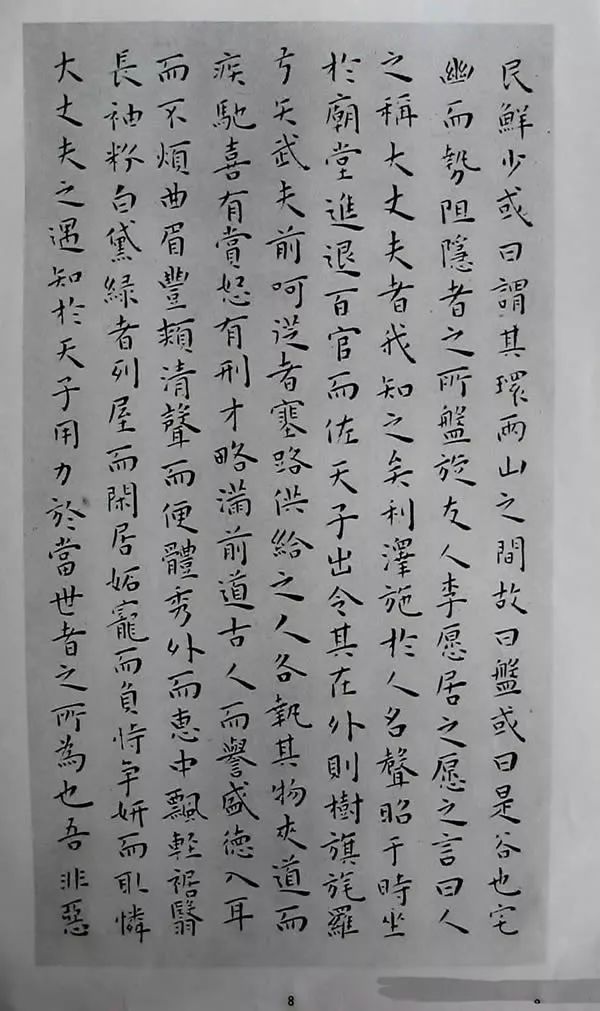 民鮮少或曰謂其環兩山之間故曰盤或曰是谷也宅
幽而勢阻隱者之所盤旋友人李愿居之愿之言曰人
之稱大丈夫者我知之矣利澤施於人名聲昭于時坐
於廟堂進退百官而佐天子出令其在外則樹旗旄羅
弓矢武夫前呵從者塞路供給之人各執其物夾道而
疾馳喜有賞怒有刑才略滿前道古今而譽盛德入耳
而不煩曲眉豐頰清聲而便體秀外而惠中飄輕裾翳
長袖粉白黛綠者列屋而閑居妬寵而負恃爭妍而取憐
大丈夫之遇知於天子用力於當世者之所為也吾非惡
8